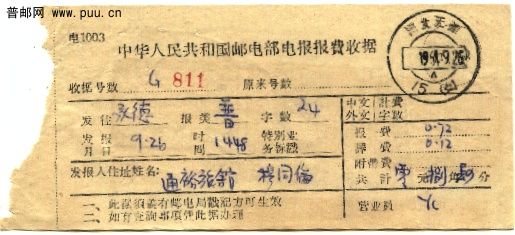 普邮网 www.puu.cn
电1003
中华人民共和国邮电部电报报费收据
收据号数 G 811 原来号数
发往 报类 普 字数 24
发报月日 9.26 时间 1448 特别业务标识
中文 計費
外文 字数
报费 0.72
譯费 0.12
附加费
共計 零 元 捌 角 分
发报人住址姓名:
通裕旅館
营业员
一、此据须盖有邮电局戳記方可生效
二、如有查询部項凭此据办理